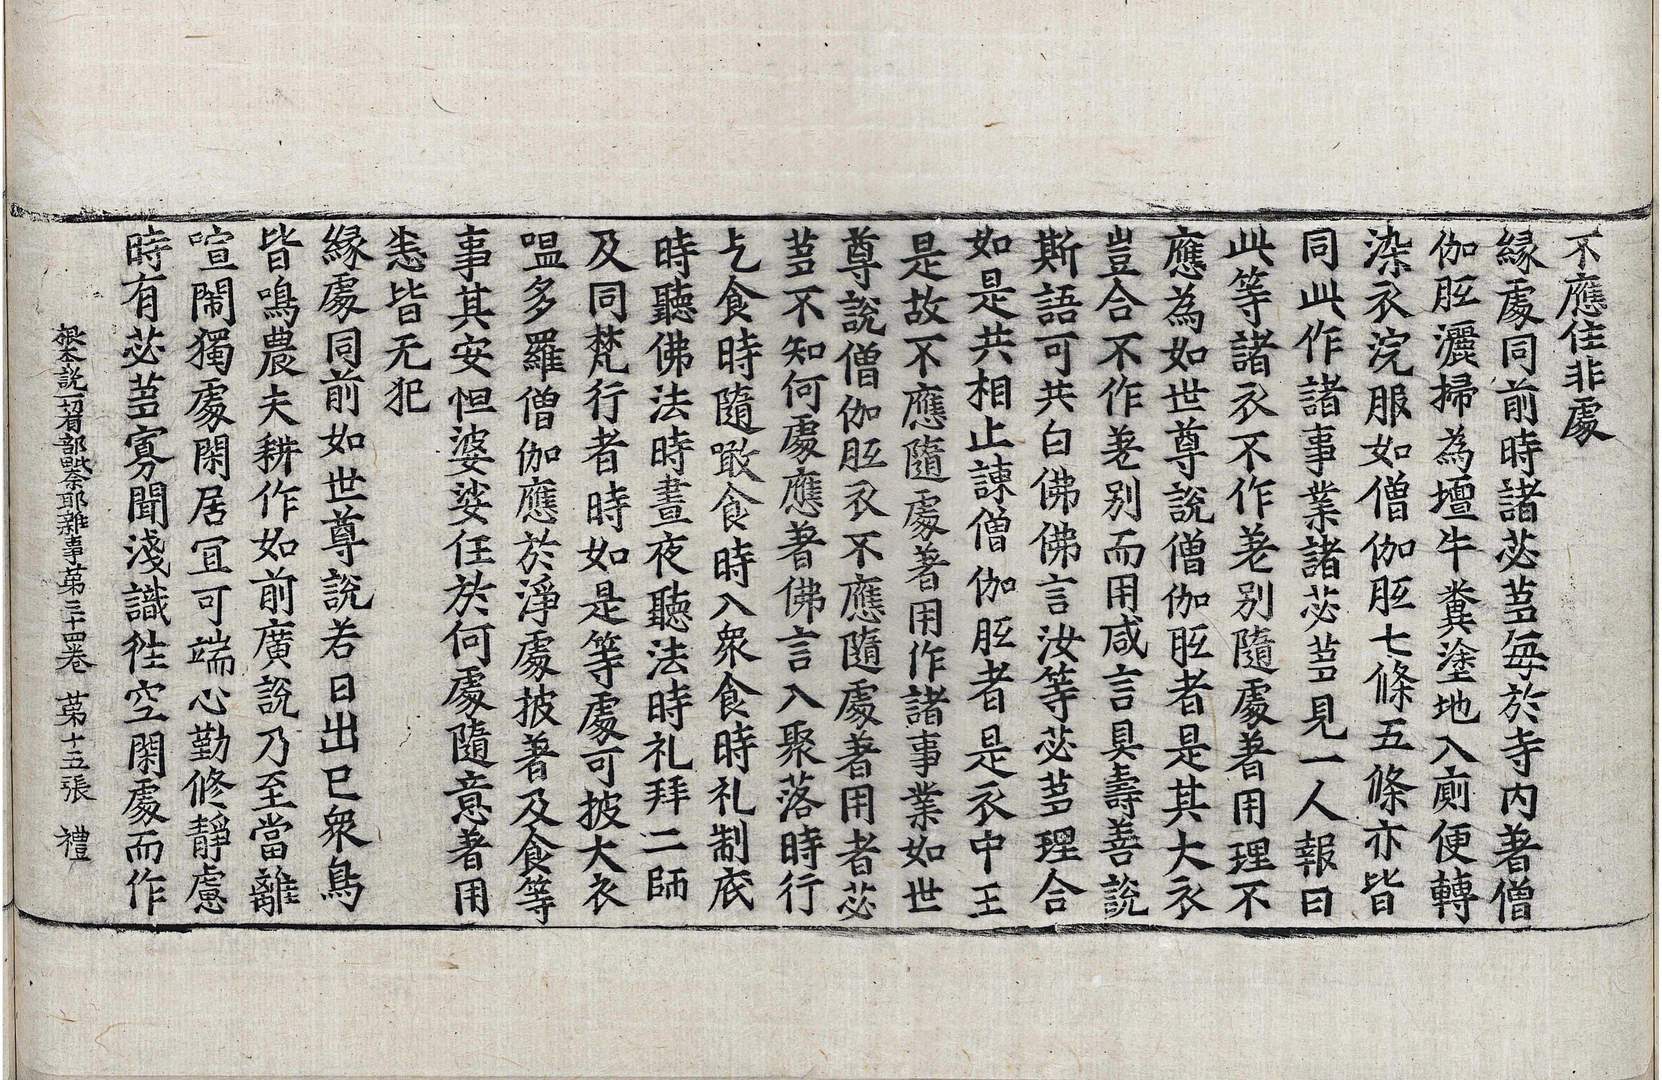 不應住非處
緣處同前時諸苾芻每於寺内著僧
伽胝灑掃為壇牛糞塗地入廁便轉
染衣浣服如僧伽胝七條五條亦皆
同此作諸事業諸苾芻見一人報曰
此等諸衣不作差別隨處著用理不
應為如世尊說僧伽胝者是其大衣
豈合不作差別而用咸言具壽善說
斯語可共白佛佛言汝等苾芻理合
如是共相止諫僧伽胝者是衣中王
是故不應隨處著用作諸事業如世
尊說僧伽胝衣不應隨處著用者苾
芻不知何處應著佛言入聚落時行
乞食時隨噉食時入衆食時礼制底
時聽佛法時晝夜聽法時礼拜二師
及同梵行者時如是等處可披大衣
嗢多羅僧伽應於淨處披著及食等
事其安怛婆娑任於何處隨意著用
恙皆无犯
緣處同前如世尊說若日出已衆鳥
皆鳴農夫耕作如前廣說乃至當離
喧鬧獨處閑居宜可端心勤修靜慮
時有苾芻寡聞淺識徃空閑處而作
根本說一切有部毗奈耶雜事第三十四卷 第十五張 禮